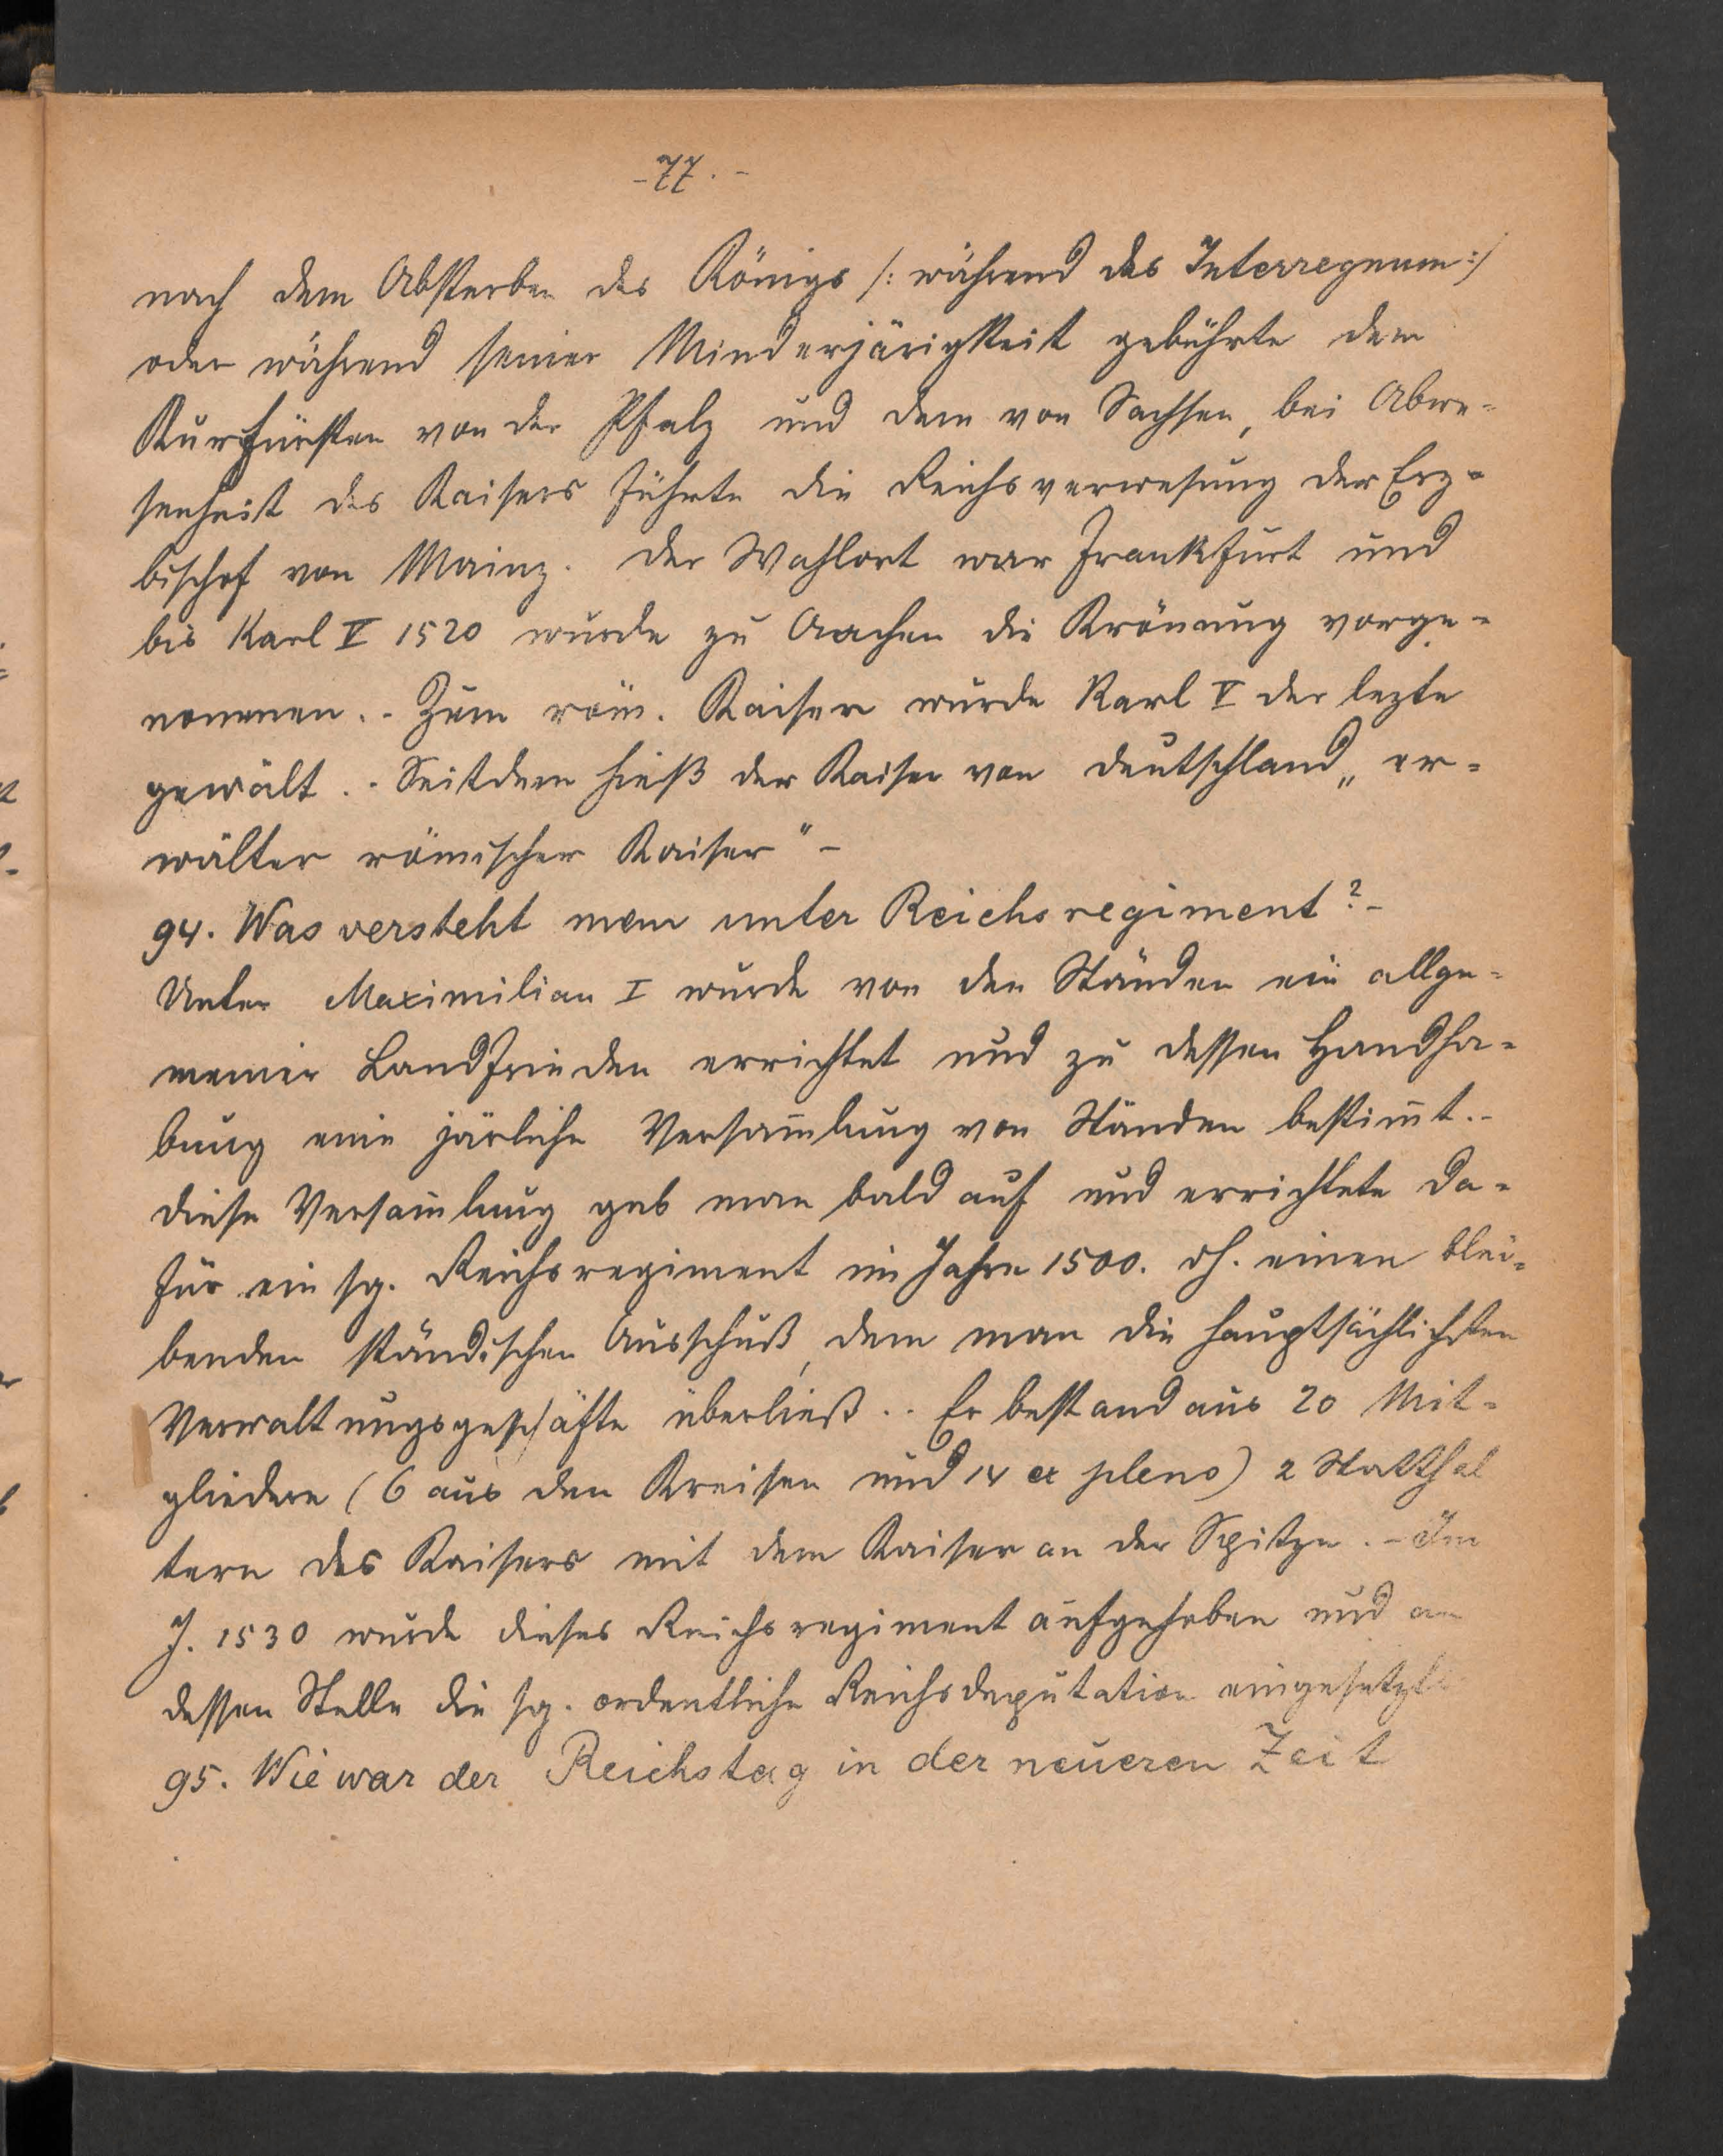 -77.-
nach dem Absterben des Königs /: während des Interregnum :/
oder während seiner Minderjärigkeit gebührte dem
Kurfürsten von der Pfalz und dem von Sachsen, bei Abwe-
senheit des Kaisers führte die Reichsverwesung der Erz-
bischof von Mainz. Der Wahlort war Frankfurt und
bis Karl V 1520 wurde zu Aachen die Krönung vorge-
nommen.- Zum röm. Kaiser wurde Karl V der lezte
gewält.- Seitdem hieß der Kaiser von Deutschland „er-
wälter römischer Kaiser" -
94. Was versteht man unter Reichsregiment? -
Unter Maximilian I wurde von den Ständen ein allge-
meiner Landfrieden errichtet und zu dessen Handha-
bung eine järliche Versam̄lung von Ständen bestim̄t.-
Diese Versam̄lung gab man bald auf und errichtete da-
für ein sg. Reichsregiment im Jahre 1500. dh. einen blei-
benden ständischen Ausschuß, dem man die hauptsächlichsten
Verwaltungsgeschäfte überließ.- Er bestand aus 20 Mit-
gliedern (6 aus den Kreisen und 14 ex pleno) 2 Statthal
tern des Kaisers mit dem Kaiser an der Spitze. - Im
J. 1530 wurde dieses Reichsregiment aufgehoben und an
dessen Stelle die sg. ordentliche Reichsdeputation eingesetzt
95. Wie war der Reichstag in der neueren Zeit